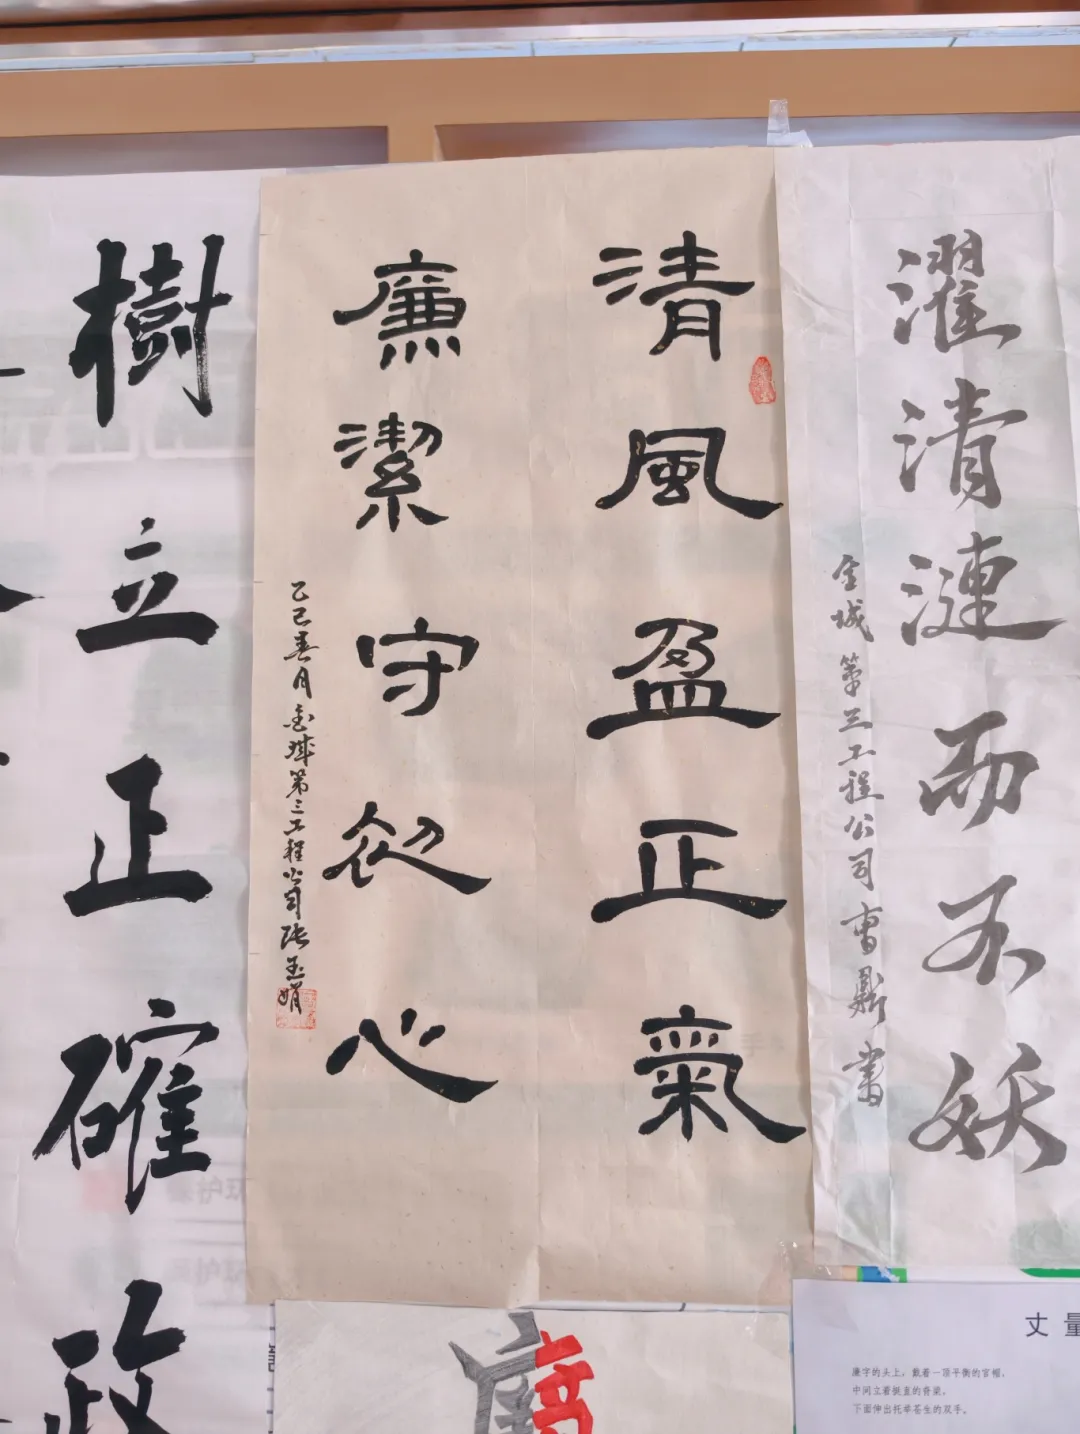 濯清漣而不妖
金城第三工程公司曹鼎書
清風盈正氣
廉潔守初心
乙巳春月金城第三工程公司張玉娟
樹立正確政
廉
丈量
廉字的头上，戴着一顶平衡的官帽，
中间立着挺直的脊梁。
下面伸出托举苍生的双手。